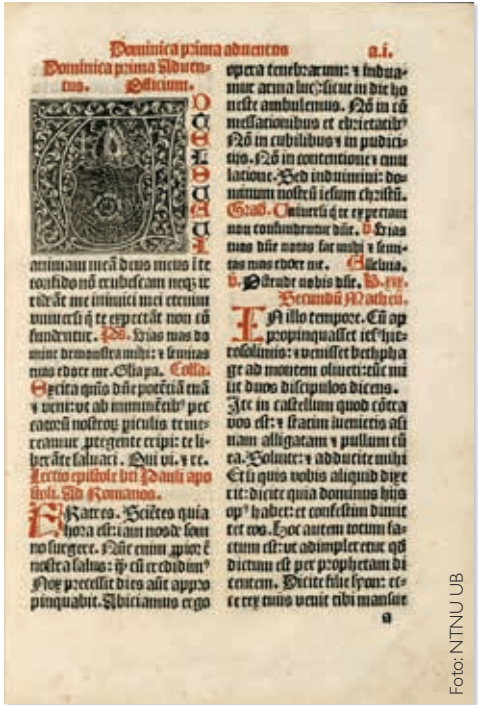 Dominica prima aduentus a.i.
Dominica prima Aduen-
tus. Officium.
D
T
E
L
E
U
A
U
I
animam meā deus meus ī te
confido nō erubescam neqʒ ir
rideāt me inimici mei etenim
vniuersi q̄ te expectāt non cō
fundentur. Ps. Uias tuas do
mine demonstra mihi: ⁊ semitas
tuas edoce me. Gl̄ia pa. Collā.
Excita quīs dn̄e potētiā tuā
⁊ veni: vt ab imminētibꝰ pec
catorū nostroꝝ ꝑiculis te me-
reamur ꝓtegente eripi: te li-
berāte saluari. Qui vi. ⁊ re.
Lectio epistole bti Pauli apo
stoli. Ad Romanos.
FRatres. Sciētes quia
hora est: iam nos de som
no surgere. Nūc enim ꝓpior ē
nostra salus: ꝙ̄ cū credidimꝰ
Nox precessit dies aūt appro
pinquabit. Abiciamus ergo
opera tenebrarum: ⁊ indua-
mur arma lucꝭ: sicut in die ho
neste ambulemus. Nō in cō
messationibus et ebrietatibꝰ
Nō in cubilibus ⁊ in pudici-
tijs. Nō in contentione ⁊ emu
latione. Sed induimini: do-
minum nostrū iesum christū.
Grad. Uniuersi q̄ te expectant
non confundentur dn̄e. v. Uias
tuas dn̄e notas fac mihi ⁊ semi-
tas tuas edoce me. Alleluia.
v. Ostende nobis dn̄e.
Secundū Matheū.
IN illo tempore. Cū ap
propinquasset iesꝰ hie-
rosolimis: ⁊ venisset bethpha
ge ad montem oliueti: tūc mi
sit duos discipulos dicens.
Ite in castellum quod cōtra
vos est: ⁊ statim inuenietis asi
nam alligatam ⁊ pullum cū
ea. Soluite: ⁊ adducite mihi
Et si quis vobis aliquid dixe
rit: dicite quia dominus hijs
opꝰ habet: et confestim dimit
tet eos. Hoc autem totum fa-
ctum est: vt adimpleretur qd̄
dictum est per prophetam di
centem. Dicite filie syon: ec-
ce rex tuus venit tibi mansue
a
Foto: NTNU UB